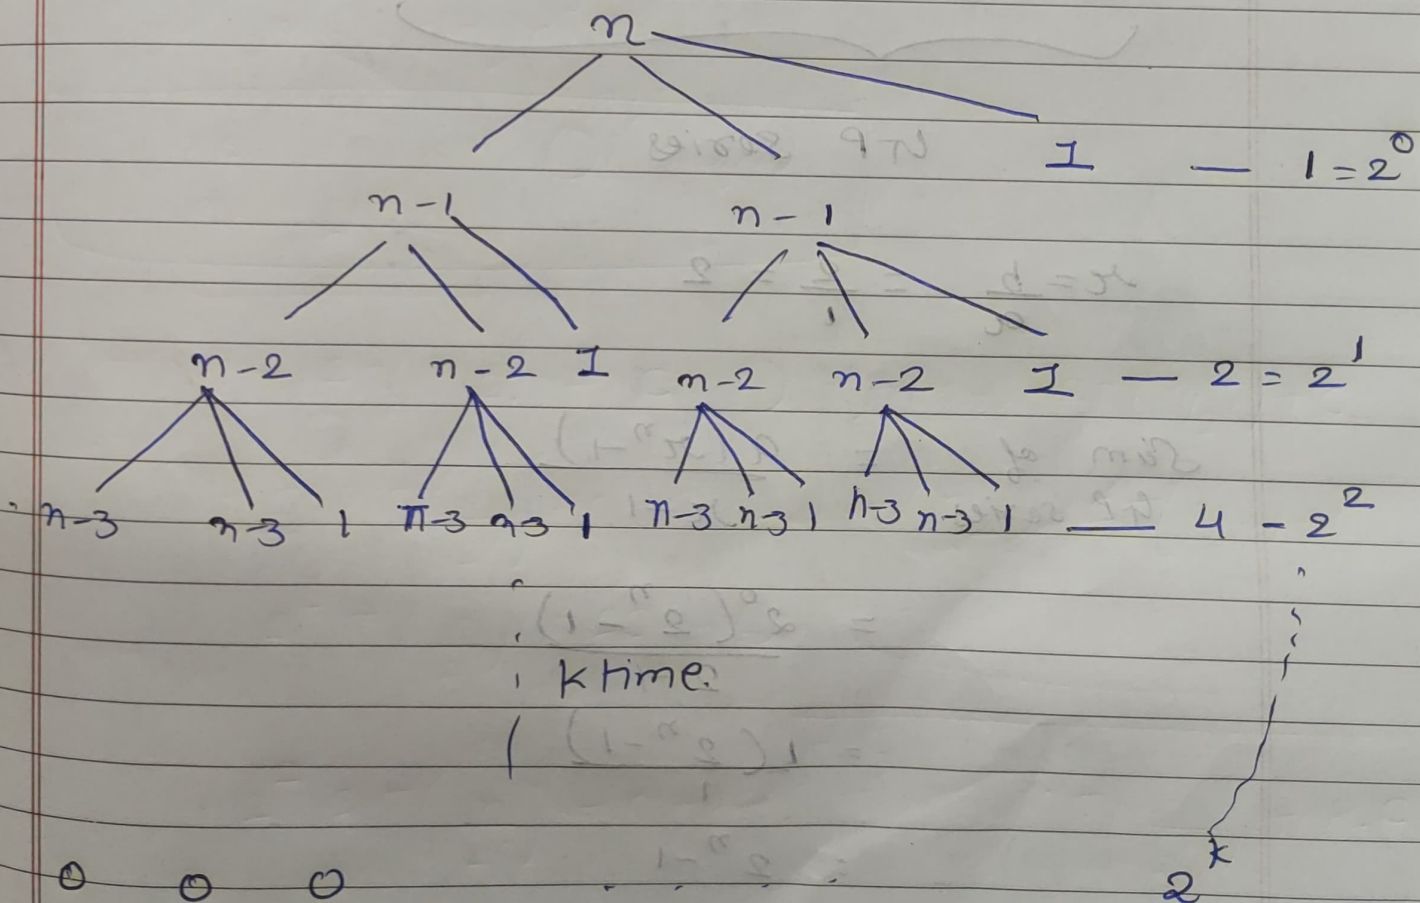 n
1 — 1 = 2⁰
n-1 n-1
n-2 n-2 1 n-2 n-2 1 — 2 = 2¹
n-3 n-3 1 n-3 n-3 1 n-3 n-3 1 n-3 n-3 1 — 4 - 2²
k time.
0 0 0 2ᵏ